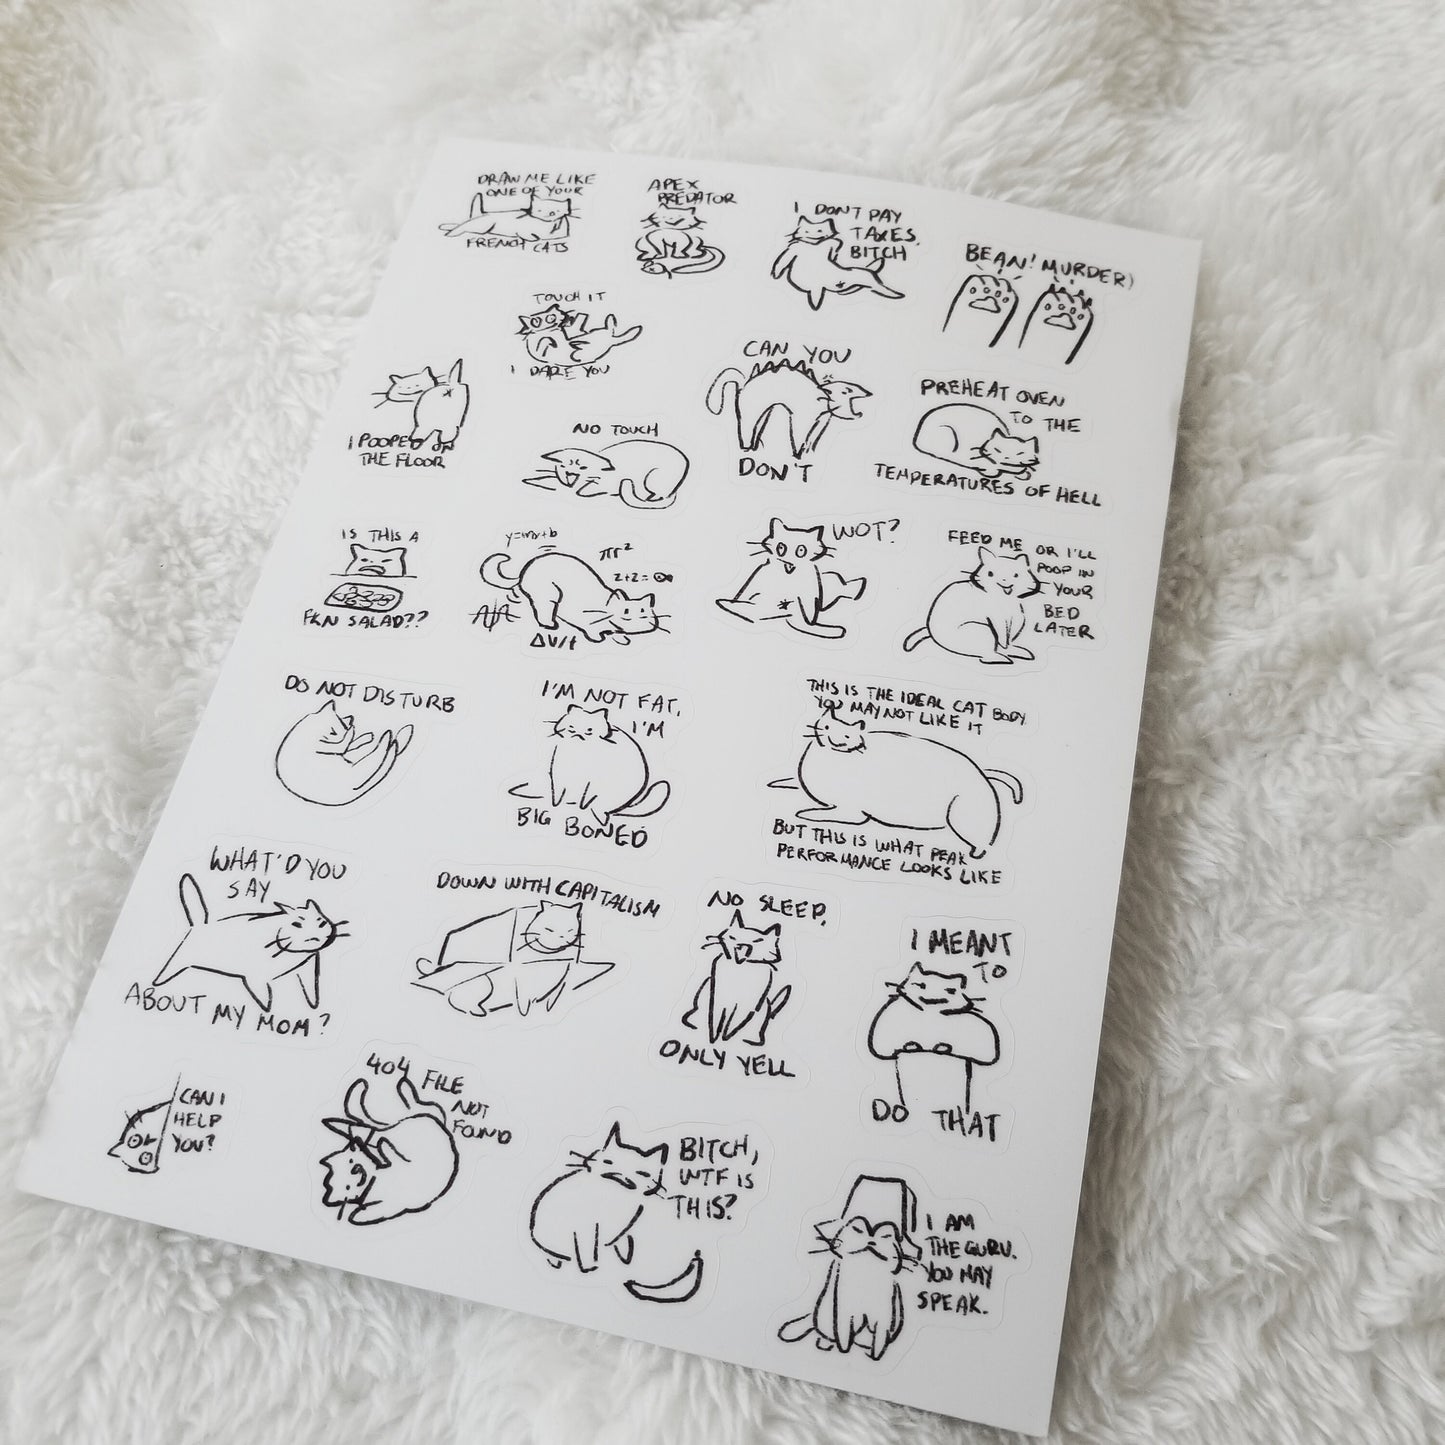 DRAW ME LIKE
ONE OF YOUR
FRENCH CATS
APEX
PREDATOR
I DON'T PAY
TAXES,
BITCH
BEAN! MURDER!
TOUCH IT
I DARE YOU
CAN YOU
DON'T
PREHEAT OVEN
TO THE
TEMPERATURES OF HELL
I POOPED ON
THE FLOOR
NO TOUCH
IS THIS A
FKN SALAD??
y=mx+b
πr²
2+2=
ΔV/t
WOT?
FEED ME OR I'LL
POOP IN
YOUR
BED
LATER
DO NOT DISTURB
I'M NOT FAT,
I'M
BIG BONED
THIS IS THE IDEAL CAT BODY
YOU MAY NOT LIKE IT
BUT THIS IS WHAT PEAK
PERFORMANCE LOOKS LIKE
WHAT'D YOU
SAY
ABOUT MY MOM?
DOWN WITH CAPITALISM
NO SLEEP,
ONLY YELL
I MEANT
TO
DO THAT
CAN I
HELP
YOU?
404 FILE
NOT
FOUND
BITCH,
WTF IS
THIS?
I AM
THE GURU.
YOU MAY
SPEAK.